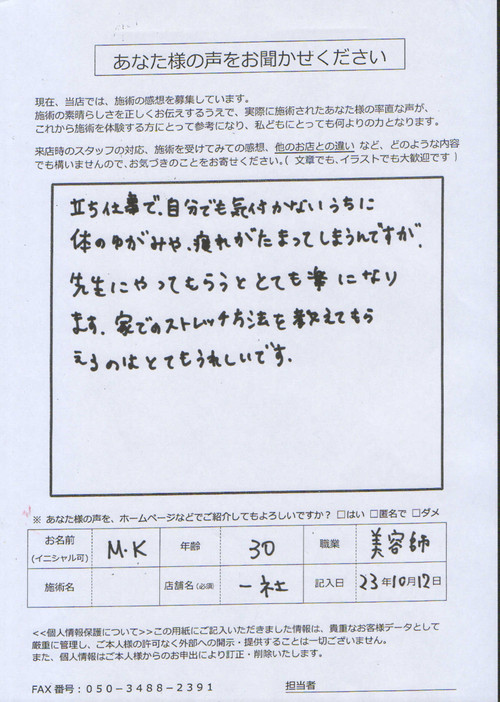 あなた様の声をお聞かせください
現在、当店では、施術の感想を募集しています。
施術の素晴らしさを正しくお伝えするうえで、実際に施術されたあなた様の率直な声が、
これから施術を体験する方にとって参考になり、私どもにとっても何よりの力となります。
来店時のスタッフの対応、施術を受けてみての感想、他のお店との違い など、どのような内容
でも構いませんので、お気づきのことをお寄せください。( 文章でも、イラストでも大歓迎です )
立ち仕事で、自分でも気付かないうちに
体のゆがみや、疲れがたまってしまうんですが、
先生にやってもらうととても楽になり
ます。家でのストレッチ方法を教えてもら
えるのはとてもうれしいです。
※ あなた様の声を、ホームページなどでご紹介してもよろしいですか? □はい □匿名で □ダメ
お名前 (イニシャル可) M・K 年齢 30 職業 美容師
施術名 店舗名(必須) 一社 記入日 23年10月12日
<<個人情報保護について>>この用紙にご記入いただきました情報は、貴重なお客様データとして
厳重に管理し、ご本人様の許可なく外部への開示・提供することは一切ございません。
また、個人情報はご本人様からのお申出により訂正・削除いたします。
FAX 番号:050-3488-2391 担当者